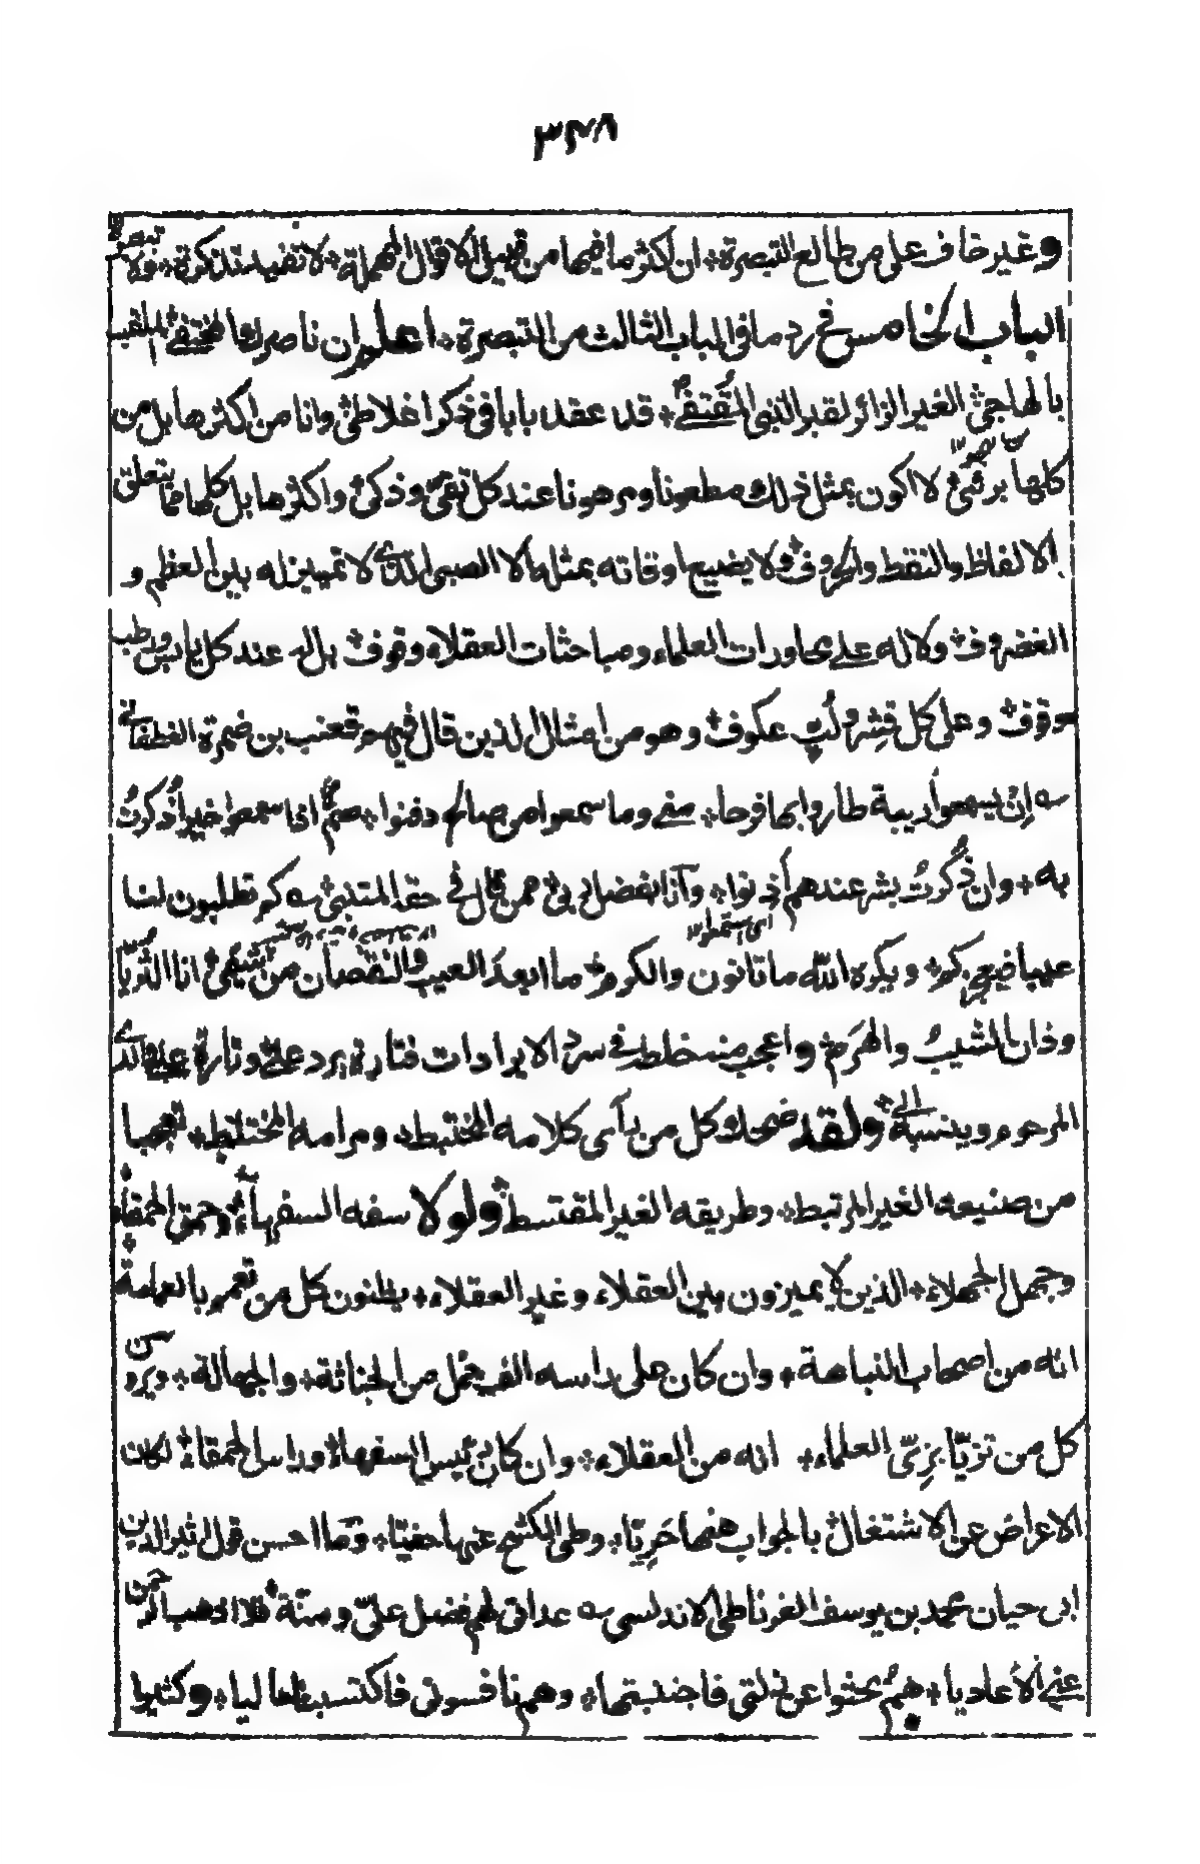 ٣٤٨
وغير خاف على من طالع التبصرة ان اكثر ما فيها من قبيل الاقوال المهملة لا تفيد تذكرة ولا تبصرة
الباب الخامس في رد ما في الباب الثالث من التبصرة اعلم ان ناصرك المختفي الملقب
بالهاجي الغير الزائر لقبر النبي المقتفى قد عقد بابا في ذكر اغلاطي وانا من اكثرها بل من
كلها برئ لا اكون بمثل ذلك مطعونا ومرهونا عند كل تقي وذكي واكثرها بل كلها مما يتعلق
بالالفاظ والنقط والحروف ولا يضيع اوقاته بمثله الا الصبي الذي لا تمييز له بين العظم و
الغضروف ولا له على محاورات العلماء ومباحثات العقلاء وقوف بل له عند كل يابس ورطب
موقوف وعلى كل قشر ولب عكوف وهو من امثال الذين قال فيهم قعنب بن ضمرة الغطفاني
ان يسمعوا ريبة طاروا بها فرحا مني وما سمعوا من صالح دفنوا صم اذا سمعوا خيرا ذكرت
به وان ذكرت بشر عندهم أذنوا وانا بفضل ربي ممن قال في حقه المتنبي كم تطلبون لنا
عيبا فيعجزكم ويكره الله ما تاتون والكرم ما ابعد العيب والنقصان من شيمي انا الثريا
وذان الشيب والهرم واعجب منه خلطه في سرد الايرادات فتارة يرد علي وتارة على والدي
المرحوم وينسبه الي ولقد ضحك كل من رأى كلامه المختبط ومرامه المختلط تعجبا
من صنيعه الغير المرتبط وطريقه الغير المقتسط ولولا سفه السفهاء وحمق الحمقاء
وجهل الجهلاء الذين لا يميزون بين العقلاء وغير العقلاء يظنون كل من تعمم بالعمامة
انه من اصحاب النباهة وان كان على راسه الف حمل من الخباثة والجهالة ويرون
كل من تزيا بزي العلماء انه من العقلاء وان كان رئيس السفهاء وراس الحمقاء لكان
الاعراض عن الاشتغال بالجواب عنها حريا وطي الكشح عنها حفيا وما احسن قول اثير الدين
ابي حيان محمد بن يوسف الغرناطي الاندلسي عداتي لهم فضل علي ومنة فلا اذهب الرحمن
عني الاعاديا هم بحثوا عن زلتي فاجتنبتها وهم نافسوني فاكتسبت المعاليا وكثيرا